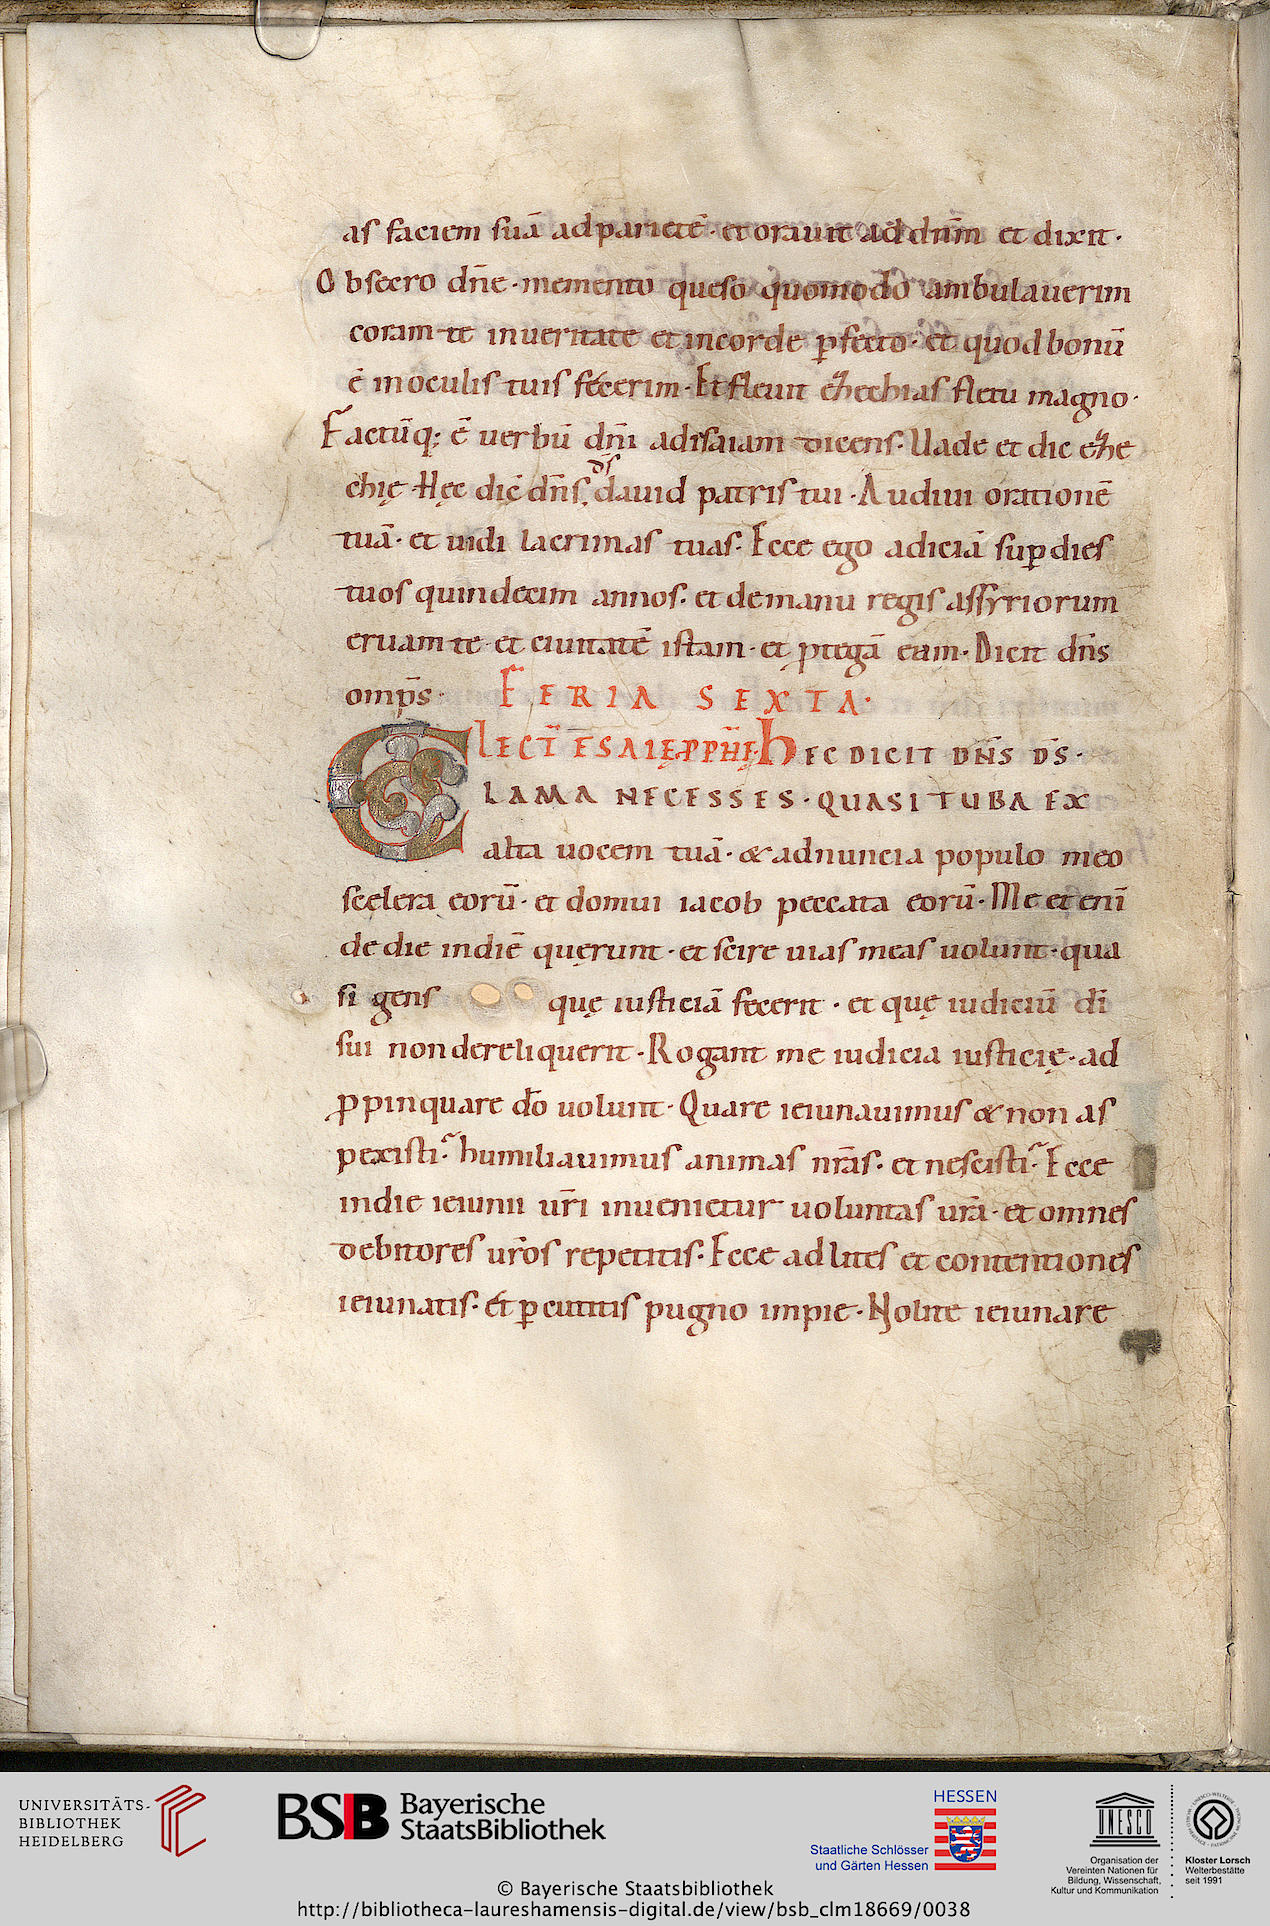 as faciem suā ad parietē· et orauit ad dn̄m et dixit·
Obsecro dn̄e· memento queso quomodo ambulauerim
coram te in ueritate et in corde ꝑfecto· et quod bonū
ē in oculis tuis fecerim· Et fleuit ezhechias fletu magno·
Factūq; ē uerbū dn̄i ad isaiam dicens· Uade et dic ezhe
chię· Hęc dic̄ dn̄s, d̄s dauid patris tui· Audiui orationē
tuā· et uidi lacrimas tuas· Ecce ego adiciā suꝑ dies
tuos quindecim annos· et de manu regis assyriorum
eruam te· et ciuitatē istam· et ꝓtegā eam· Dicit dn̄s
omp̄s· FERIA SEXTA·
LECT̄ ESAIĘ PPHĘ· HEC DICIT DN̄S D̄S·
CLAMA NE CESSES· QUASI TUBA EX
alta uocem tuā· & adnuncia populo meo
scelera eorū· et domui iacob peccata eorū· Me etenī
de die in diē quęrunt· et scire uias meas uolunt· qua
si gens quę iusticiā fecerit· et quę iudiciū dī
sui non dereliquerit· Rogant me iudicia iusticię· ad
ꝓpinquare dō uolunt· Quare ieiunauimus & non as
pexisti? humiliauimus animas nr̄as· et nescisti? Ecce
in die ieiunii ur̄i inuenietur uoluntas ur̄a· et omnes
debitores ur̄os repetitis· Ecce ad lites et contentiones
ieiunatis· et ꝑcutitis pugno impie· Nolite ieiunare
UNIVERSITÄTS-
BIBLIOTHEK
HEIDELBERG
BSB Bayerische
StaatsBibliothek
HESSEN
Staatliche Schlösser
und Gärten Hessen
UNESCO
Organisation der
Vereinten Nationen für
Bildung, Wissenschaft,
Kultur und Kommunikation
Kloster Lorsch
Welterbestätte
seit 1991
© Bayerische Staatsbibliothek
http://bibliotheca-laureshamensis-digital.de/view/bsb_clm18669/0038